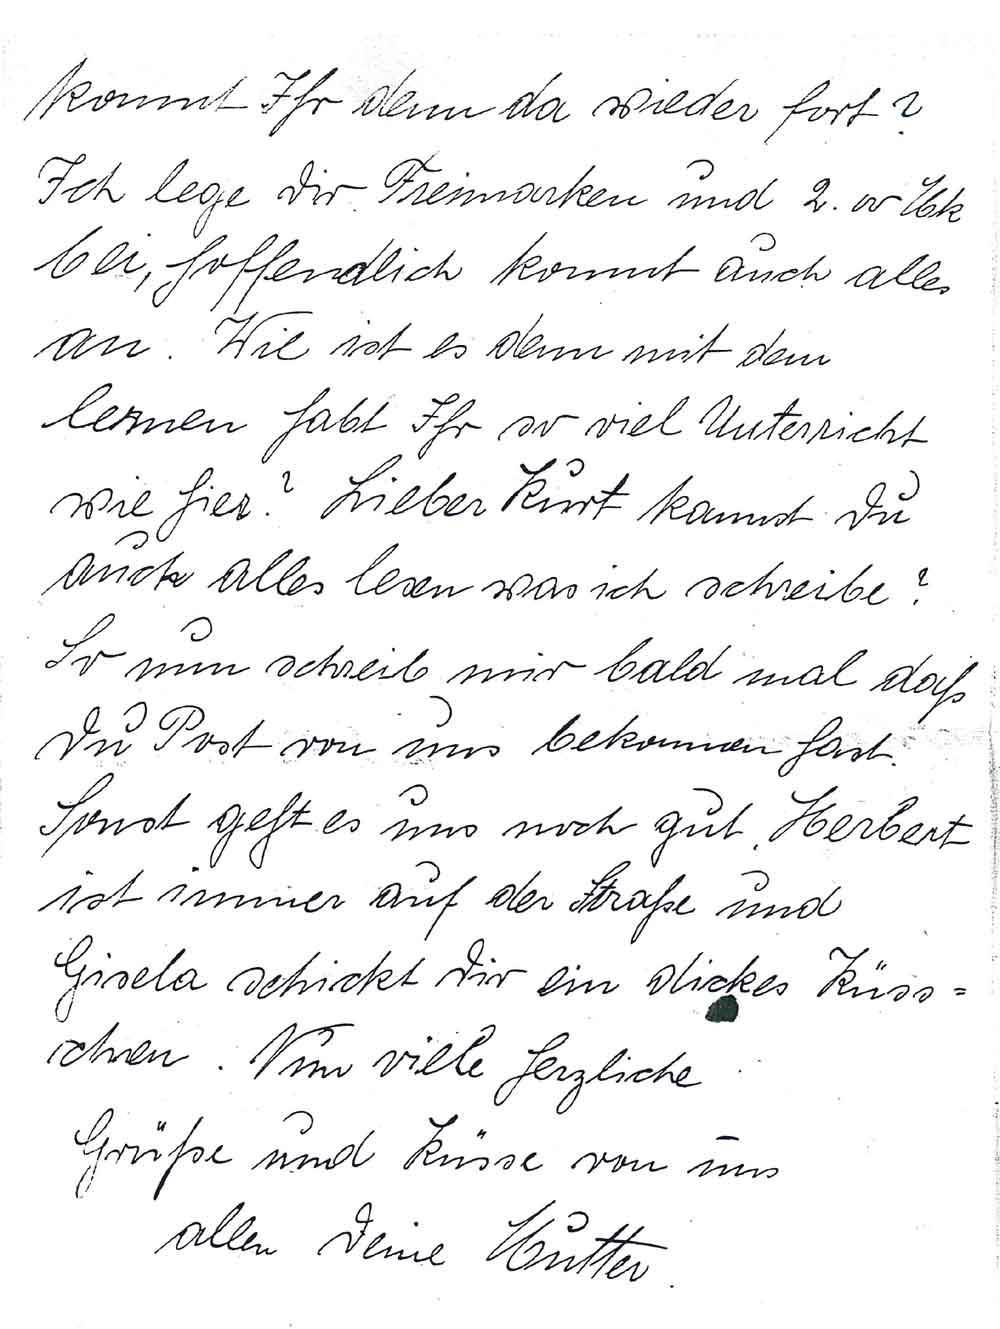 kommt Ihr denn da wieder fort?
Ich lege dir Freimarken und 2. Mk
bei, hoffendlich kommt auch alles
an. Wie ist es denn mit dem
lernen habt Ihr so viel Unterricht
wie hier? Lieber Kurt kannst Du
auch alles lesen was ich schreibe?
So nun schreib mir bald mal daß
Du Post von uns bekommen hast.
Sonst geht es uns noch gut. Herbert
ist immer auf der Straße und
Gisela schickt dir ein dickes Küss=
chen. Nun viele herzliche
Grüße und Küsse von uns
allen Deine Mutter.